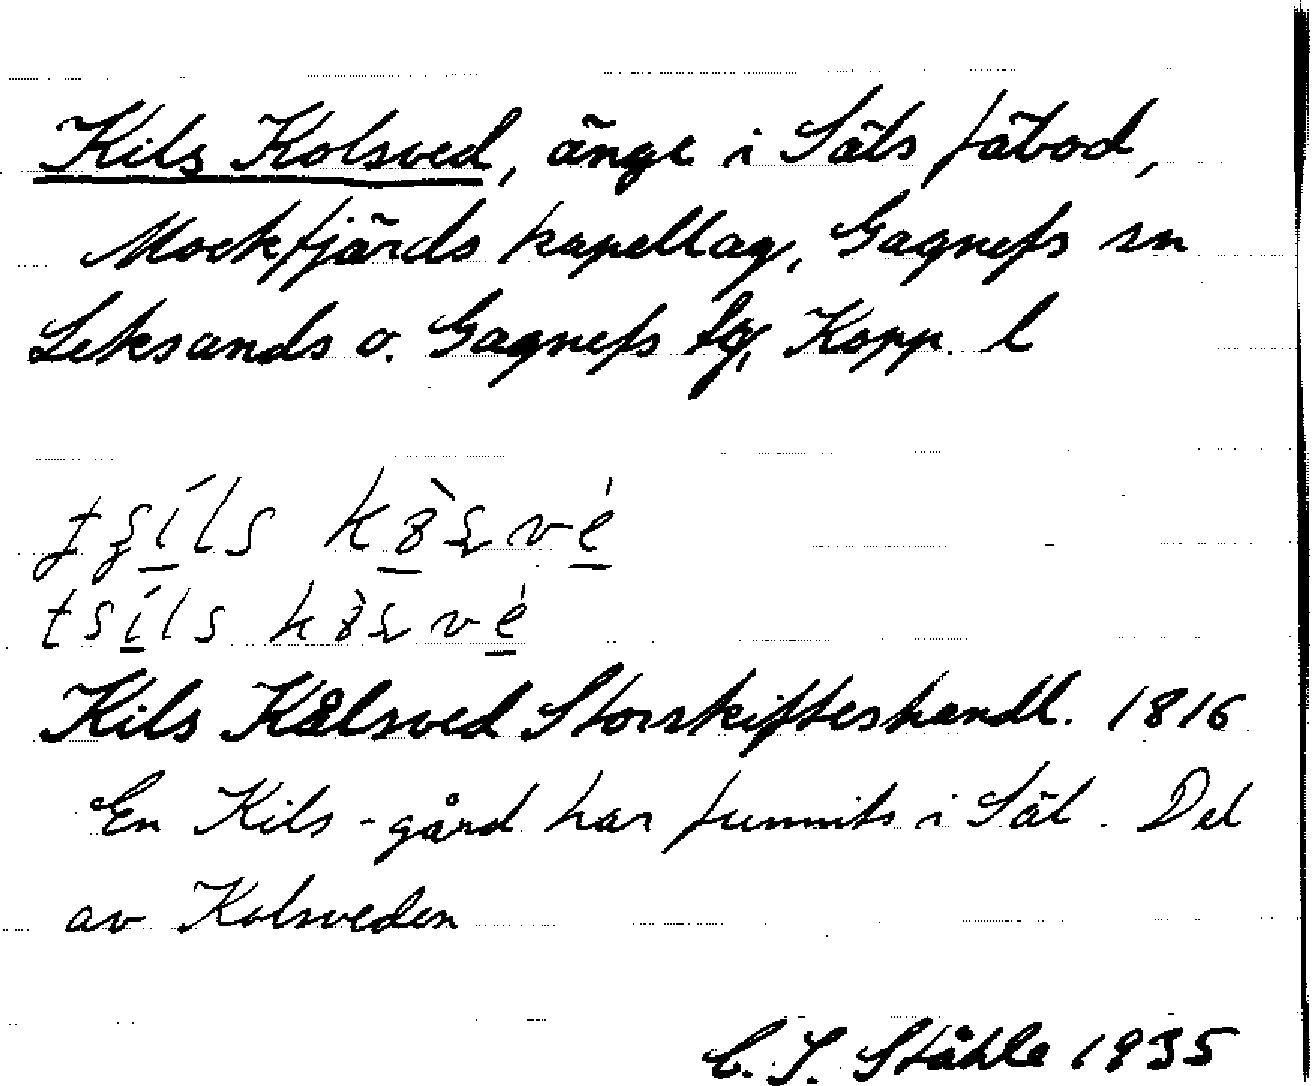 Kils Kolsved, änge i Säls fäbod,
Mockfjärds kapellag, Gagnefs sn
Leksands o. Gagnefs tg, Kopp. l
Kils Kålsved Storskifteshandl. 1816
En Kils-gård har funnits i Säl. Del
av Kolsveden
C. I. Ståhle 1935